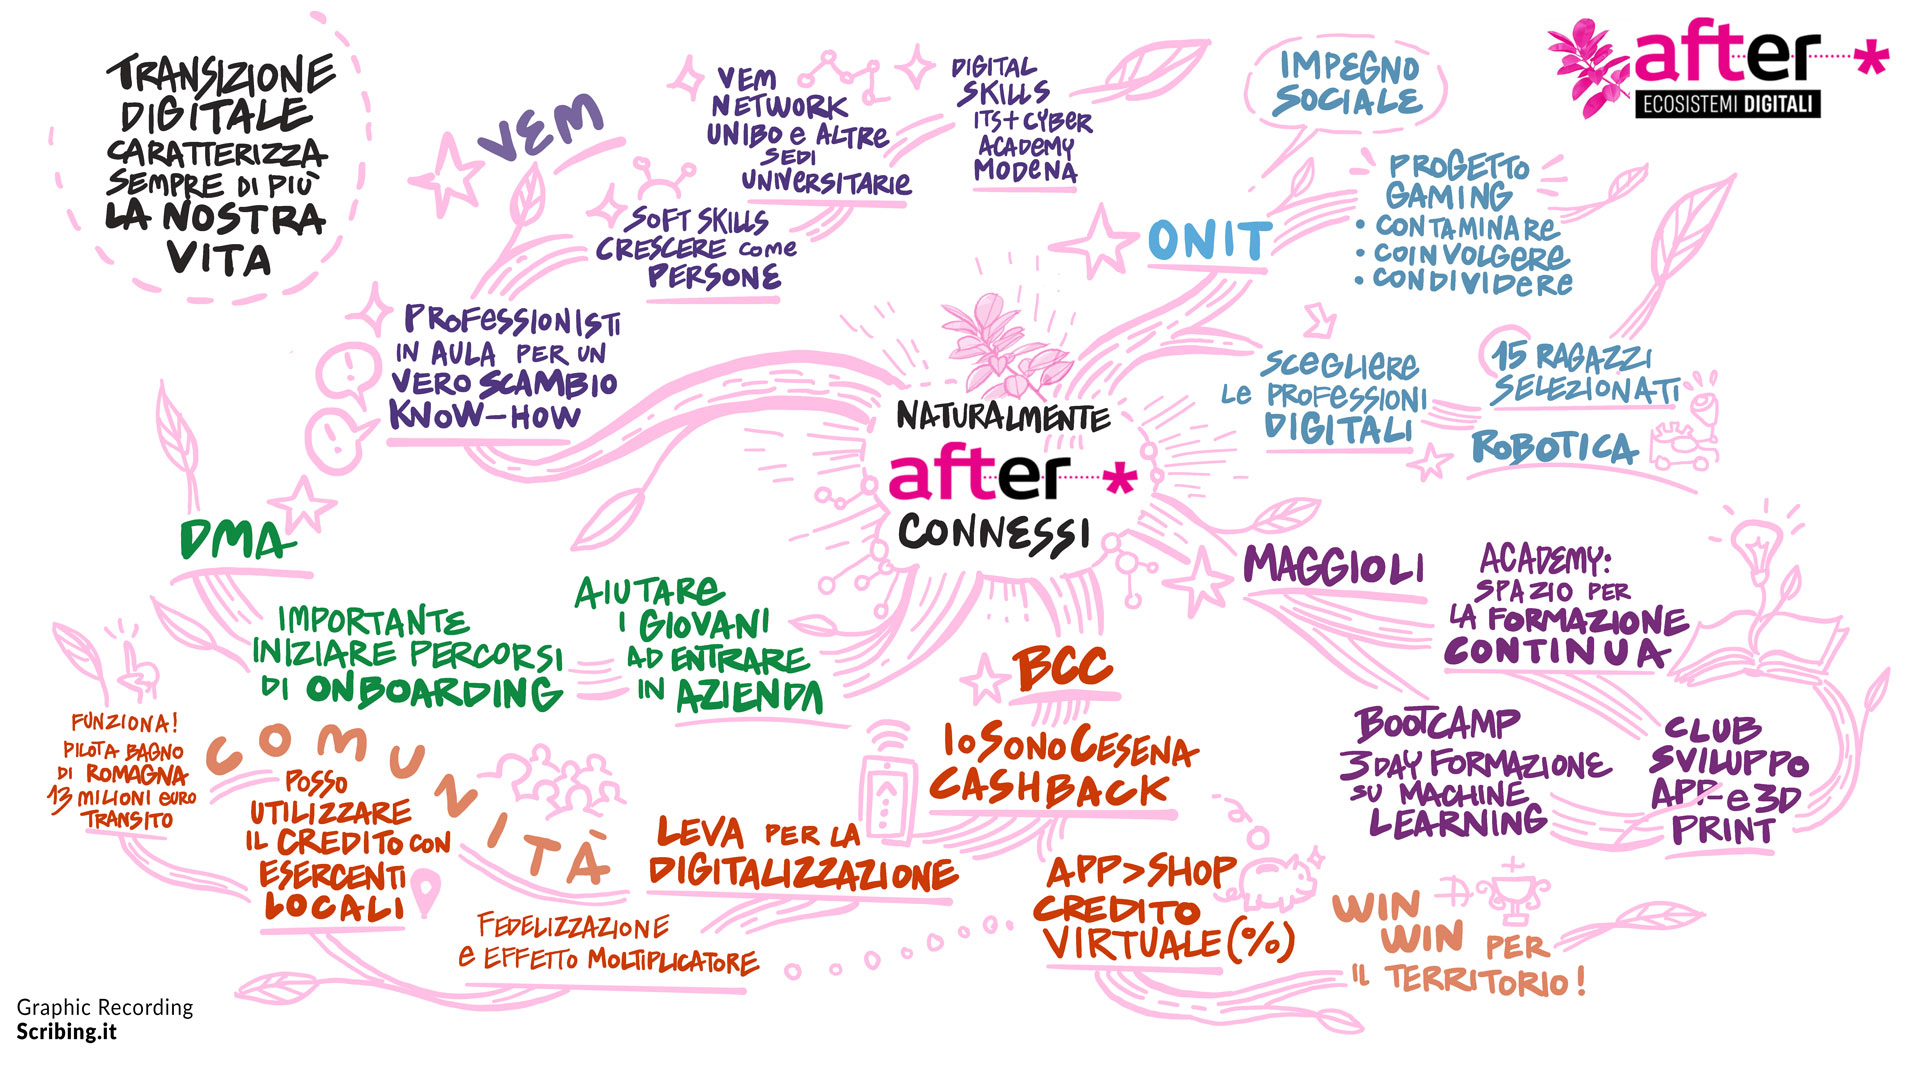 TRANSIZIONE
DIGITALE
CARATTERIZZA
SEMPRE DI PIÙ
LA NOSTRA
VITA
VEM
VEM
NETWORK
UNIBO e ALTRE
SEDI
UNIVERSITARIE
DIGITAL
SKILLS
ITS+CYBER
ACADEMY
MODENA
SOFT SKILLS
CRESCERE COME
PERSONE
PROFESSIONISTI
IN AULA PER UN
VERO SCAMBIO
KNOW-HOW
IMPEGNO
SOCIALE
after *
ECOSISTEMI DIGITALI
ONIT
PROGETTO
GAMING
• CONTAMINARE
• COINVOLGERE
• CONDIVIDERE
SCEGLIERE
LE PROFESSIONI
DIGITALI
15 RAGAZZI
SELEZIONATI
ROBOTICA
NATURALMENTE
after *
CONNESSI
DMA
IMPORTANTE
INIZIARE PERCORSI
DI ONBOARDING
AIUTARE
I GIOVANI
AD ENTRARE
IN AZIENDA
MAGGIOLI
ACADEMY:
SPAZIO PER
LA FORMAZIONE
CONTINUA
BOOTCAMP
3 DAY FORMAZIONE
SU MACHINE
LEARNING
CLUB
SVILUPPO
APP e 3D
PRINT
BCC
IOSONOCESENA
CASHBACK
LEVA PER LA
DIGITALIZZAZIONE
APP>SHOP
CREDITO
VIRTUALE (%)
WIN
WIN PER
IL TERRITORIO!
COMUNITÀ
FUNZIONA!
PILOTA BAGNO
DI ROMAGNA
13 MILIONI EURO
TRANSITO
POSSO
UTILIZZARE
IL CREDITO CON
ESERCENTI
LOCALI
FEDELIZZAZIONE
e EFFETTO MOLTIPLICATORE
Graphic Recording
Scribing.it